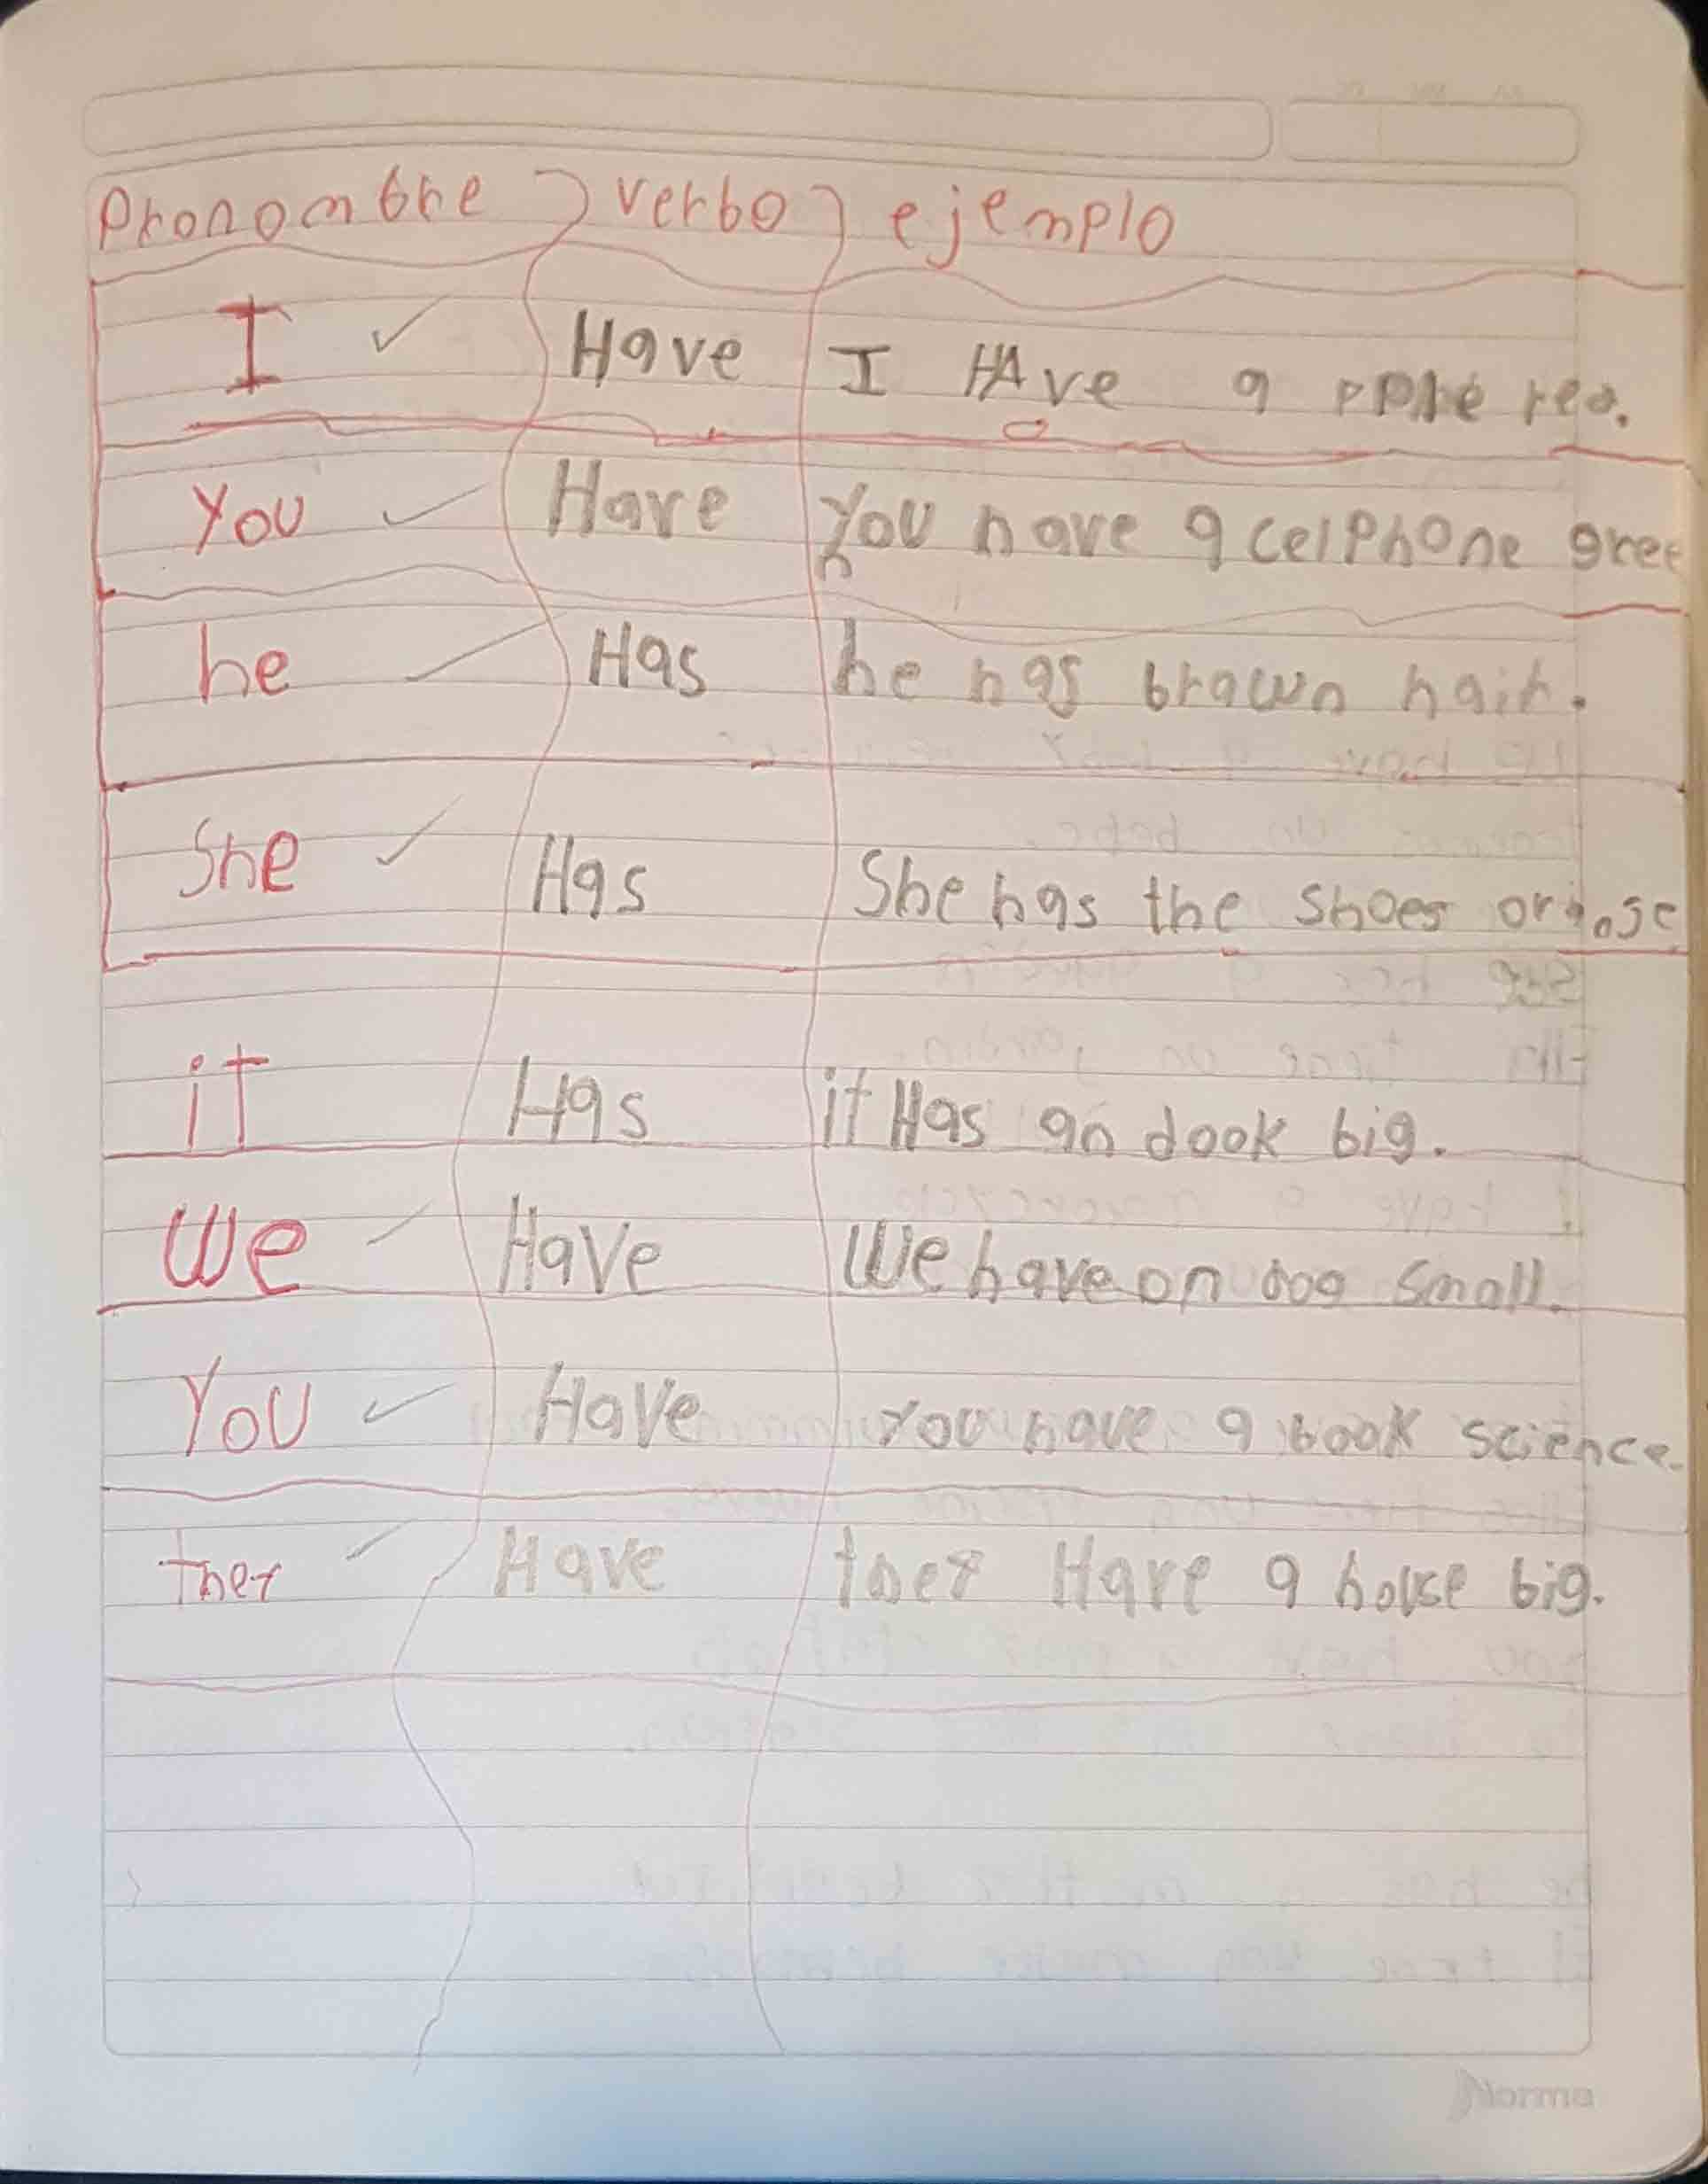 Pronombre verbo ejemplo
I Have I HAve a pple red.
You Have You have a celphone gree
he Has he has brawn hair.
She Has She has the shoes orange
it Has it Has an dook big.
We Have We have on dog small.
You Have You have a book science.
they Have they Have a house big.
Norma